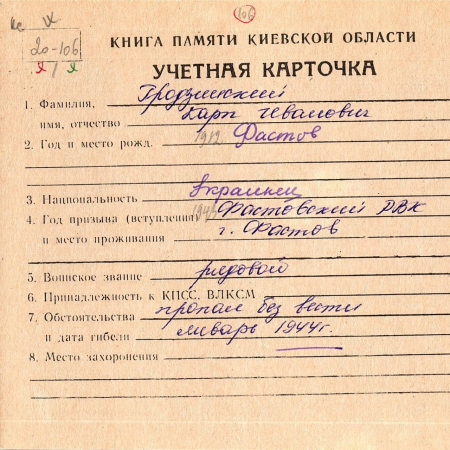 106
IX
20-106
Я / Я
КНИГА ПАМЯТИ КИЕВСКОЙ ОБЛАСТИ
УЧЕТНАЯ КАРТОЧКА
1. Фамилия,
имя, отчество Карп Иванович
2. Год и место рожд. 1912 Фастов
3. Национальность украинец
4. Год призыва (вступления) Фастовский РВК
и место проживания г. Фастов
5. Воинское звание рядовой
6. Принадлежность к КПСС, ВЛКСМ
7. Обстоятельства пропал без вести
и дата гибели январь 1944г.
8. Место захоронения